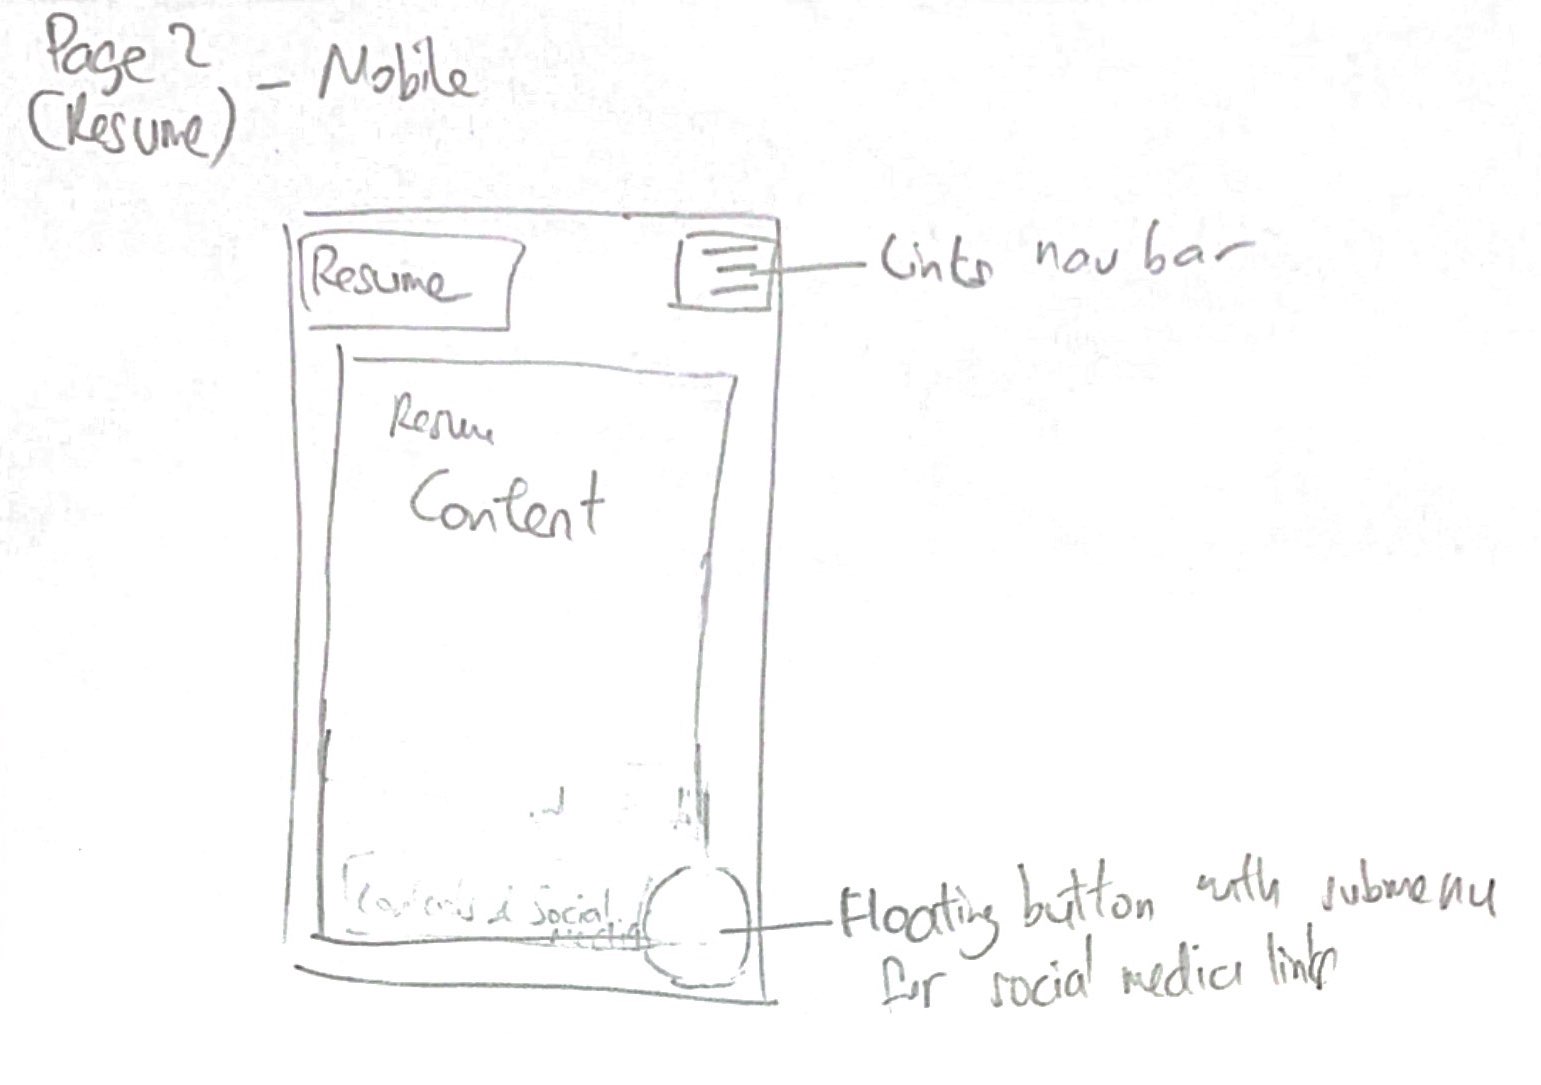 Page 2
(Resume) - Mobile
Resume
Links nav bar
Resume
Content
Contents & Social
media
Floating button with submenu
for social media links